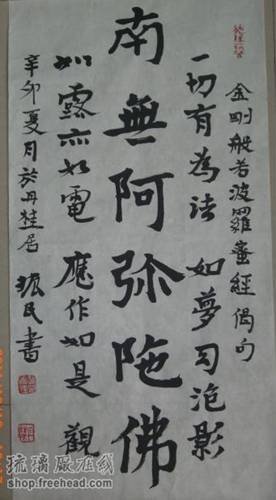 金剛般若波羅蜜經偈句
一切有為法 如夢幻泡影
南無阿弥陁佛
如露亦如電 應作如是觀
辛卯夏月於丹桂居 振民書
琉璃厰在线
shop.freehead.com